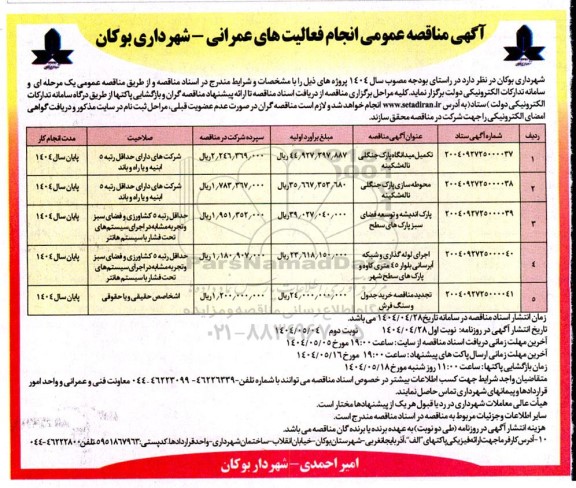 آگهی مناقصه عمومی انجام فعالیت های عمرانی - شهرداری بوکان
شهرداری بوکان در نظر دارد در راستای بودجه مصوب سال ۱۴۰۴ پروژه های ذیل را با مشخصات و شرایط مندرج در اسناد مناقصه و از طریق مناقصه عمومی یک مرحله ای و
سامانه تدارکات الکترونیکی دولت برگزار نماید. کلیه مراحل برگزاری مناقصه از دریافت اسناد مناقصه تا ارائه پیشنهاد مناقصه گران و بازگشایی پاکتها از طریق درگاه سامانه تدارکات
الکترونیکی دولت (ستاد) به آدرس www.setadiran.ir انجام خواهد شد و لازم است مناقصه گران در صورت عدم عضویت قبلی، مراحل ثبت نام در سایت مذکور و دریافت گواهی
امضای الکترونیکی را جهت شرکت در مناقصه محقق سازند.
ردیف شماره آگهی ستاد عنوان آگهی مناقصه مبلغ برآورد اولیه سپرده شرکت در مناقصه صلاحیت مدت انجام کار
۱ ۲۰۰۴۰۹۲۷۲۵۰۰۰۰۳۷ تکمیل میدانگاه پارک جنگلی ناله شکینه ۴۴,۹۲۷,۳۹۷,۸۸۷ریال ۲,۲۴۶,۳۶۹,۰۰۰ریال شرکت های دارای حداقل رتبه ۵ ابنیه و یا راه و باند پایان سال ۱۴۰۴
۲ ۲۰۰۴۰۹۲۷۲۵۰۰۰۰۳۸ محوطه سازی پارک جنگلی ناله شکینه ۳۵,۶۶۷,۳۵۳,۶۸۰ریال ۱,۷۸۳,۳۶۷,۰۰۰ریال شرکت های دارای حداقل رتبه ۵ ابنیه و یا راه و باند پایان سال ۱۴۰۴
۳ ۲۰۰۴۰۹۲۷۲۵۰۰۰۰۳۹ پارک اندیشه و توسعه فضای سبز پارک های سطح ۳۹,۰۲۷,۰۴۰,۰۰۰ریال ۱,۹۵۱,۳۵۲,۰۰۰ریال حداقل رتبه ۵ کشاورزی و فضای سبز و تجربه مشابه در اجرای سیستم های تحت فشار با سیستم هانتر پایان سال ۱۴۰۴
۴ ۲۰۰۴۰۹۲۷۲۵۰۰۰۰۴۰ اجرای لوله گذاری و شبکه آبرسانی بلوار ۴۵ متری کاوه و پارک های سطح شهر ۲۳,۶۱۸,۱۵۰,۰۰۰ریال ۱,۱۸۰,۹۰۷,۰۰۰ریال حداقل رتبه ۵ کشاورزی و فضای سبز و تجربه مشابه در اجرای سیستم های تحت فشار با سیستم هانتر پایان سال ۱۴۰۴
۵ ۲۰۰۴۰۹۲۷۲۵۰۰۰۰۴۱ تجدید مناقصه خرید جدول و سنگ فرش ۲۴,۰۰۰,۰۰۰,۰۰۰ریال ۱,۲۰۰,۰۰۰,۰۰۰ریال اشخاص حقیقی و یا حقوقی پایان سال ۱۴۰۴
زمان انتشار اسناد مناقصه در سامانه تاریخ ۱۴۰۴/۰۴/۲۸ می باشد.
تاریخ انتشار آگهی در روزنامه: نوبت اول ۱۴۰۴/۰۴/۲۸ نوبت دوم ۱۴۰۴/۰۵/۰۴
آخرین مهلت زمانی دریافت اسناد مناقصه از سایت: ساعت ۱۹:۰۰ مورخ ۱۴۰۴/۰۵/۰۵
آخرین مهلت زمانی ارسال پاکت های پیشنهاد: ساعت ۱۹:۰۰ مورخ ۱۴۰۴/۰۵/۱۶
زمان بازگشایی پاکتها: ساعت ۱۱:۰۰ روز شنبه مورخ ۱۴۰۴/۰۵/۱۸
متقاضیان واجد شرایط جهت کسب اطلاعات بیشتر در خصوص اسناد مناقصه می توانند با شماره تلفن ۴۶۲۲۶۳۳۹-۴۶۲۲۳۰۹۹-۰۴۴ معاونت فنی و عمرانی و واحد امور
قراردادها و پیمانهای شهرداری تماس حاصل نمایند.
هیأت عالی معاملات شهرداری در رد یا قبول هر یک از پیشنهادها مختار است.
سایر اطلاعات و جزئیات مربوط به مناقصه در اسناد مناقصه مندرج است.
هزینه انتشار آگهی در روزنامه (طی دو نوبت) به عهده برنده یا برنده گان مناقصه می باشد.
۱۰-آدرس کارفرما جهت ارائه فیزیکی پاکتهای "الف": آذربایجانغربی-شهرستان بوکان-خیابان انقلاب-ساختمان شهرداری-واحد قراردادها. کدپستی: ۵۹۵۱۸۶۷۹۶۳ تلفن: ۴۶۲۲۲۸۰۰-۰۴۴
امیر احمدی - شهردار بوکان
ParsNamadData
۰۲۱-۸۸۳۴۹۶۷۰-۵